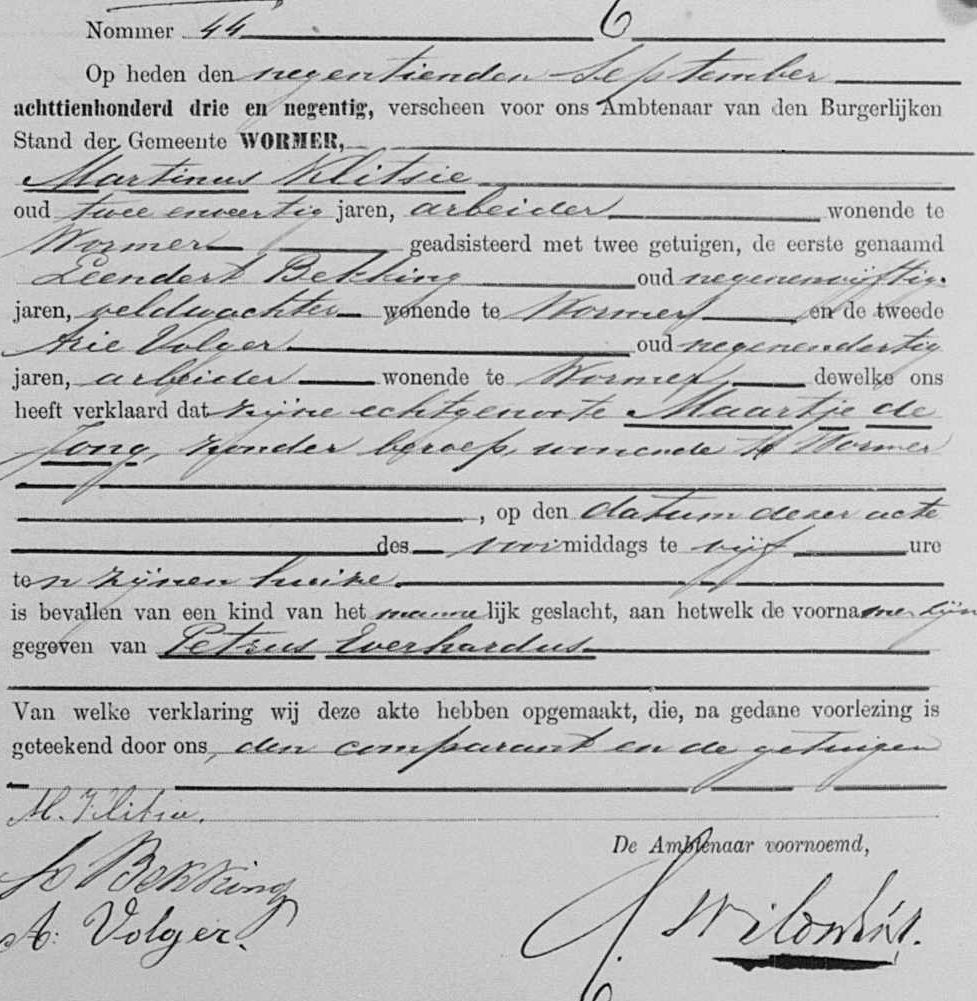 Nommer 44
Op heden den negentienden September
achttienhonderd drie en negentig, verscheen voor ons Ambtenaar van den Burgerlijken
Stand der Gemeente WORMER,
Martinus Klitsie
oud twee enveertig jaren, arbeider wonende te
Wormer geadsisteerd met twee getuigen, de eerste genaamd
Leendert Bekking oud negenenvijftig
jaren, veldwachter wonende te Wormer en de tweede
Arie Volger oud negenendertig
jaren, arbeider wonende te Wormer, dewelke ons
heeft verklaard dat zijne echtgenoote Maartje de
Jong, zonder beroep, wonende te Wormer
, op den datum dezer acte
des voormiddags te vijf ure
ten zijnen huize
is bevallen van een kind van het mannelijk geslacht, aan hetwelk de voornamen zijn
gegeven van Petrus Everhardus
Van welke verklaring wij deze akte hebben opgemaakt, die, na gedane voorlezing is
geteekend door ons, den comparant en de getuigen
M. Klitsie.
L Bekking
A. Volger.
De Ambtenaar voornoemd,